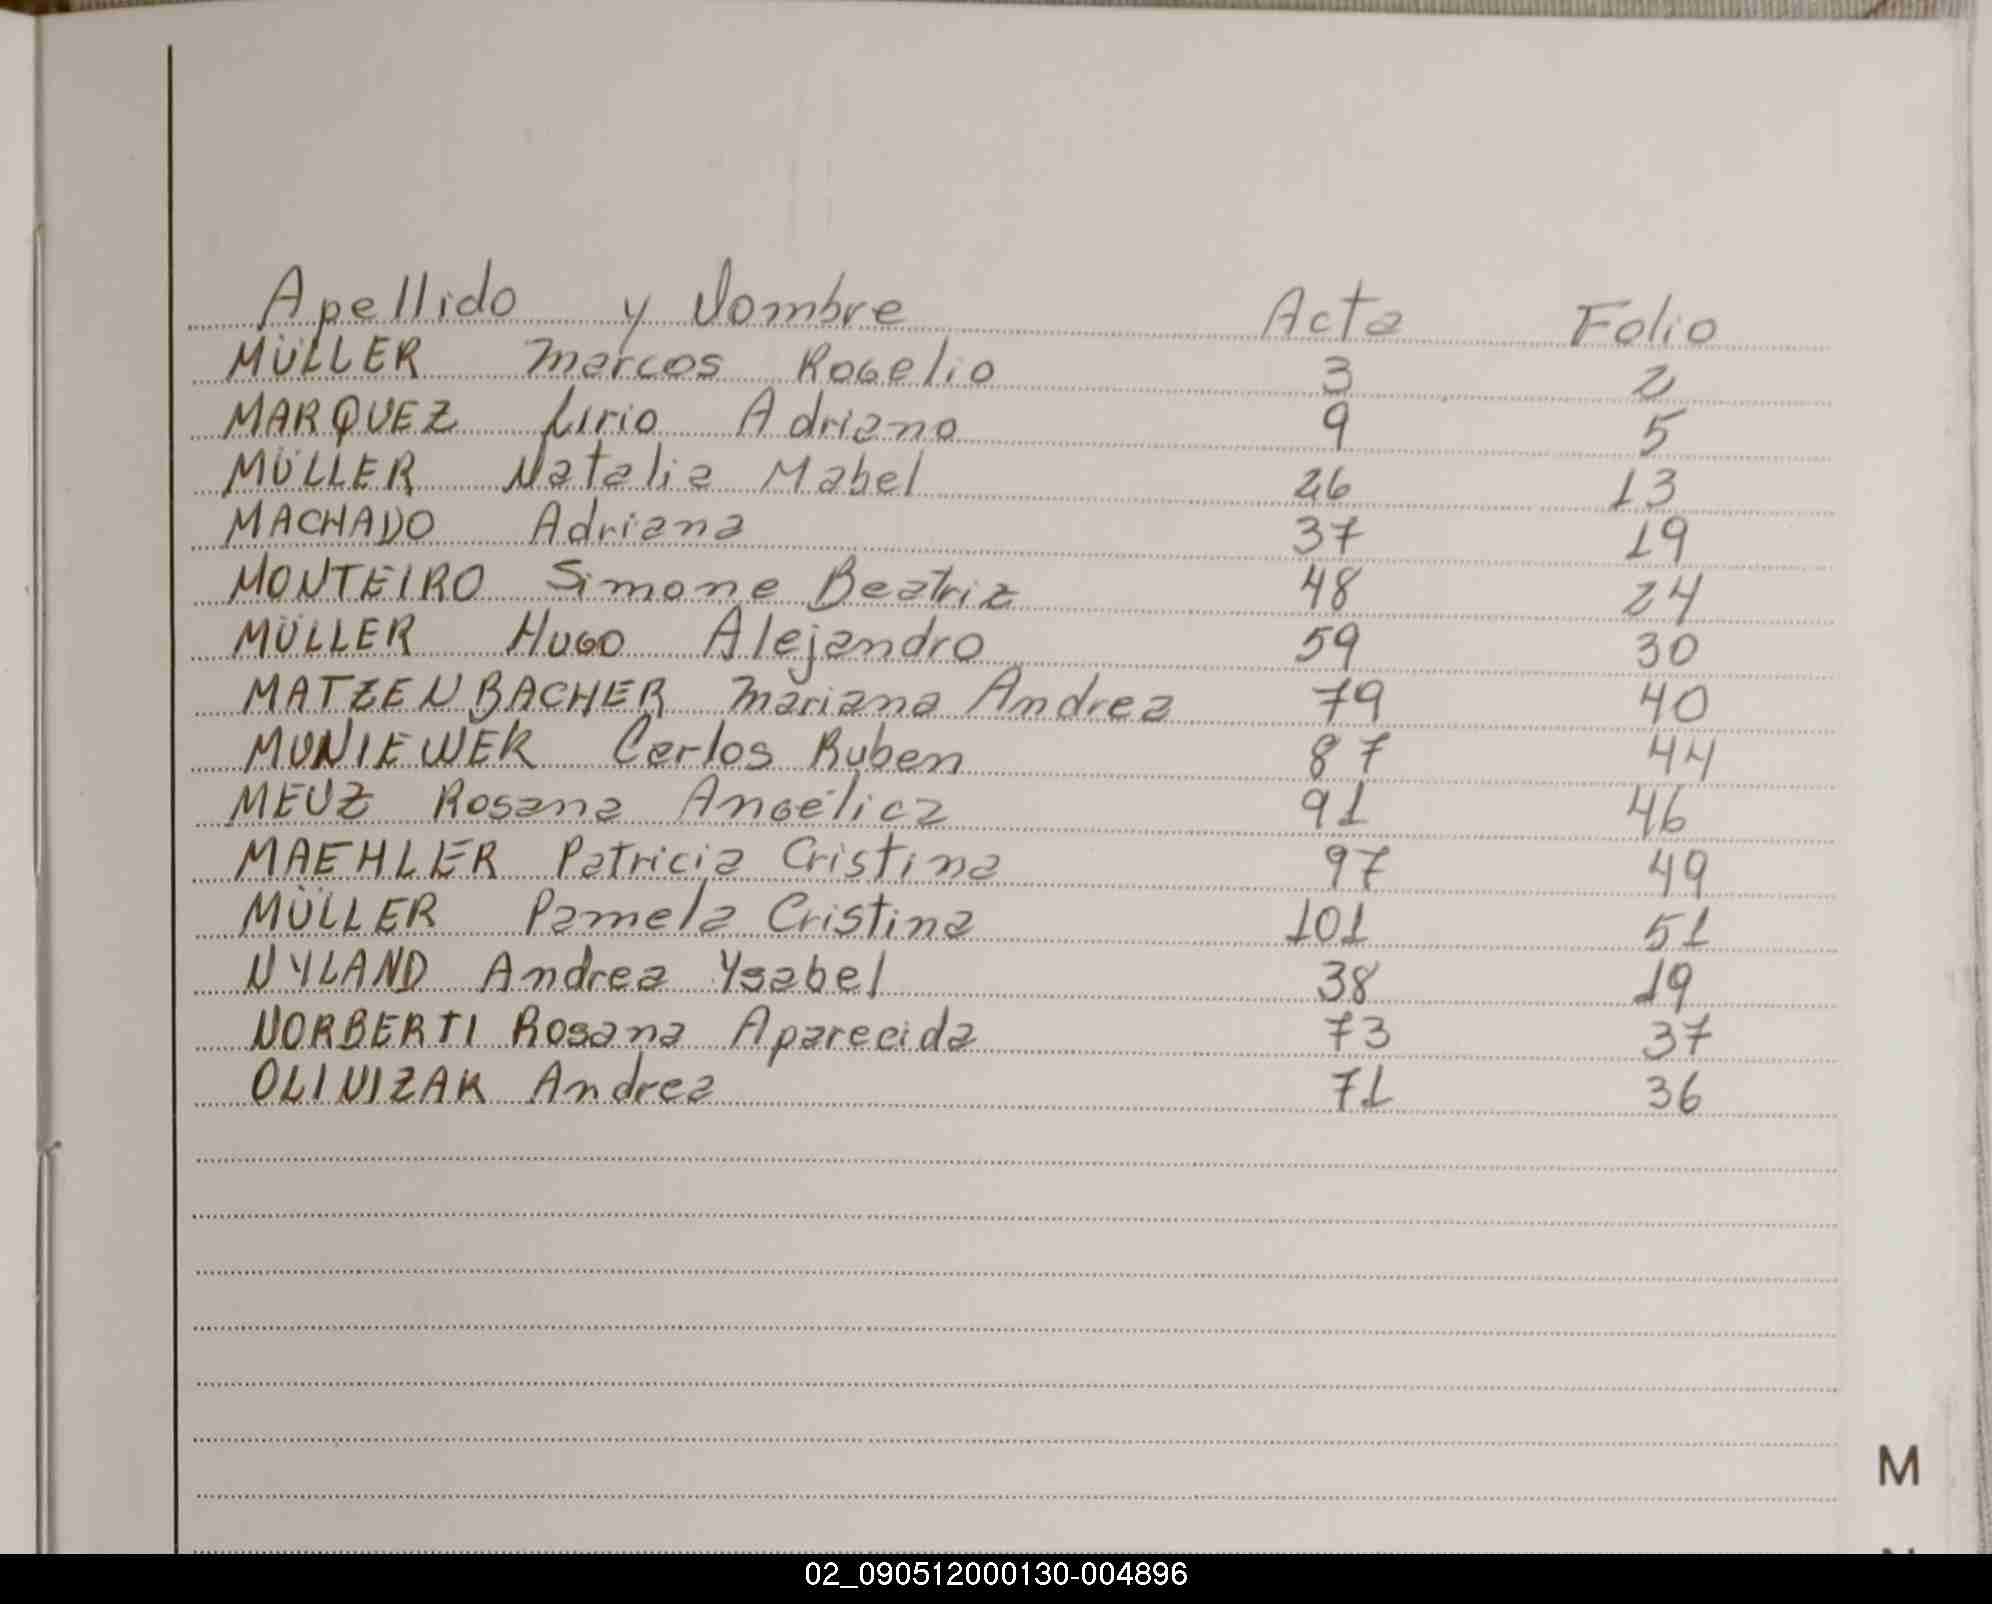 Apellido y Nombre Acta Folio
MÜLLER Marcos Rogelio 3 2
MARQUEZ Lirio Adriano 9 5
MÜLLER Natalia Mabel 26 13
MACHADO Adriana 37 19
MONTEIRO Simone Beatriz 48 24
MÜLLER Hugo Alejandro 59 30
MATZENBACHER Mariana Andrea 79 40
MUNIEWEK Carlos Ruben 87 44
MEUZ Rosana Angélica 91 46
MAEHLER Patricia Cristina 97 49
MÜLLER Pamela Cristina 101 51
NYLAND Andrea Ysabel 38 19
NORBERTI Rosana Aparecida 73 37
OLINIZAK Andrea 71 36
M
02_090512000130-004896